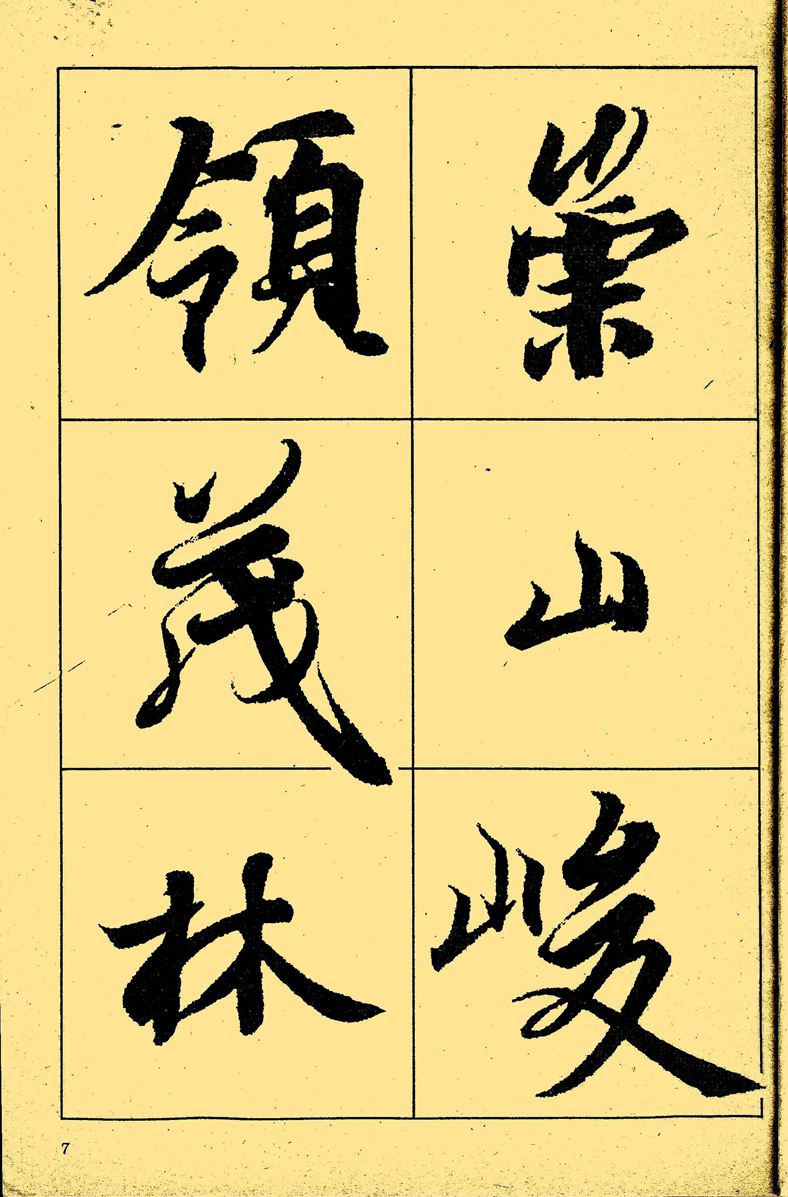 崇山峻
領茂林
7